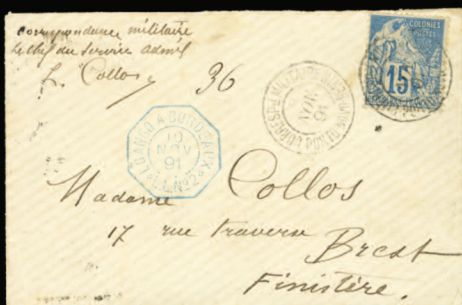 correspondance militaire
le chef du service admif
L. Collos
36
COLONIES
POSTES
15
CORRESP. MILITAIRE
PORTO
NOV
91
LOANGO A BORDEAUX
19
NOV
91
L.L. Nº2
Madame Collos
17 rue travers
Brest
Finistère.